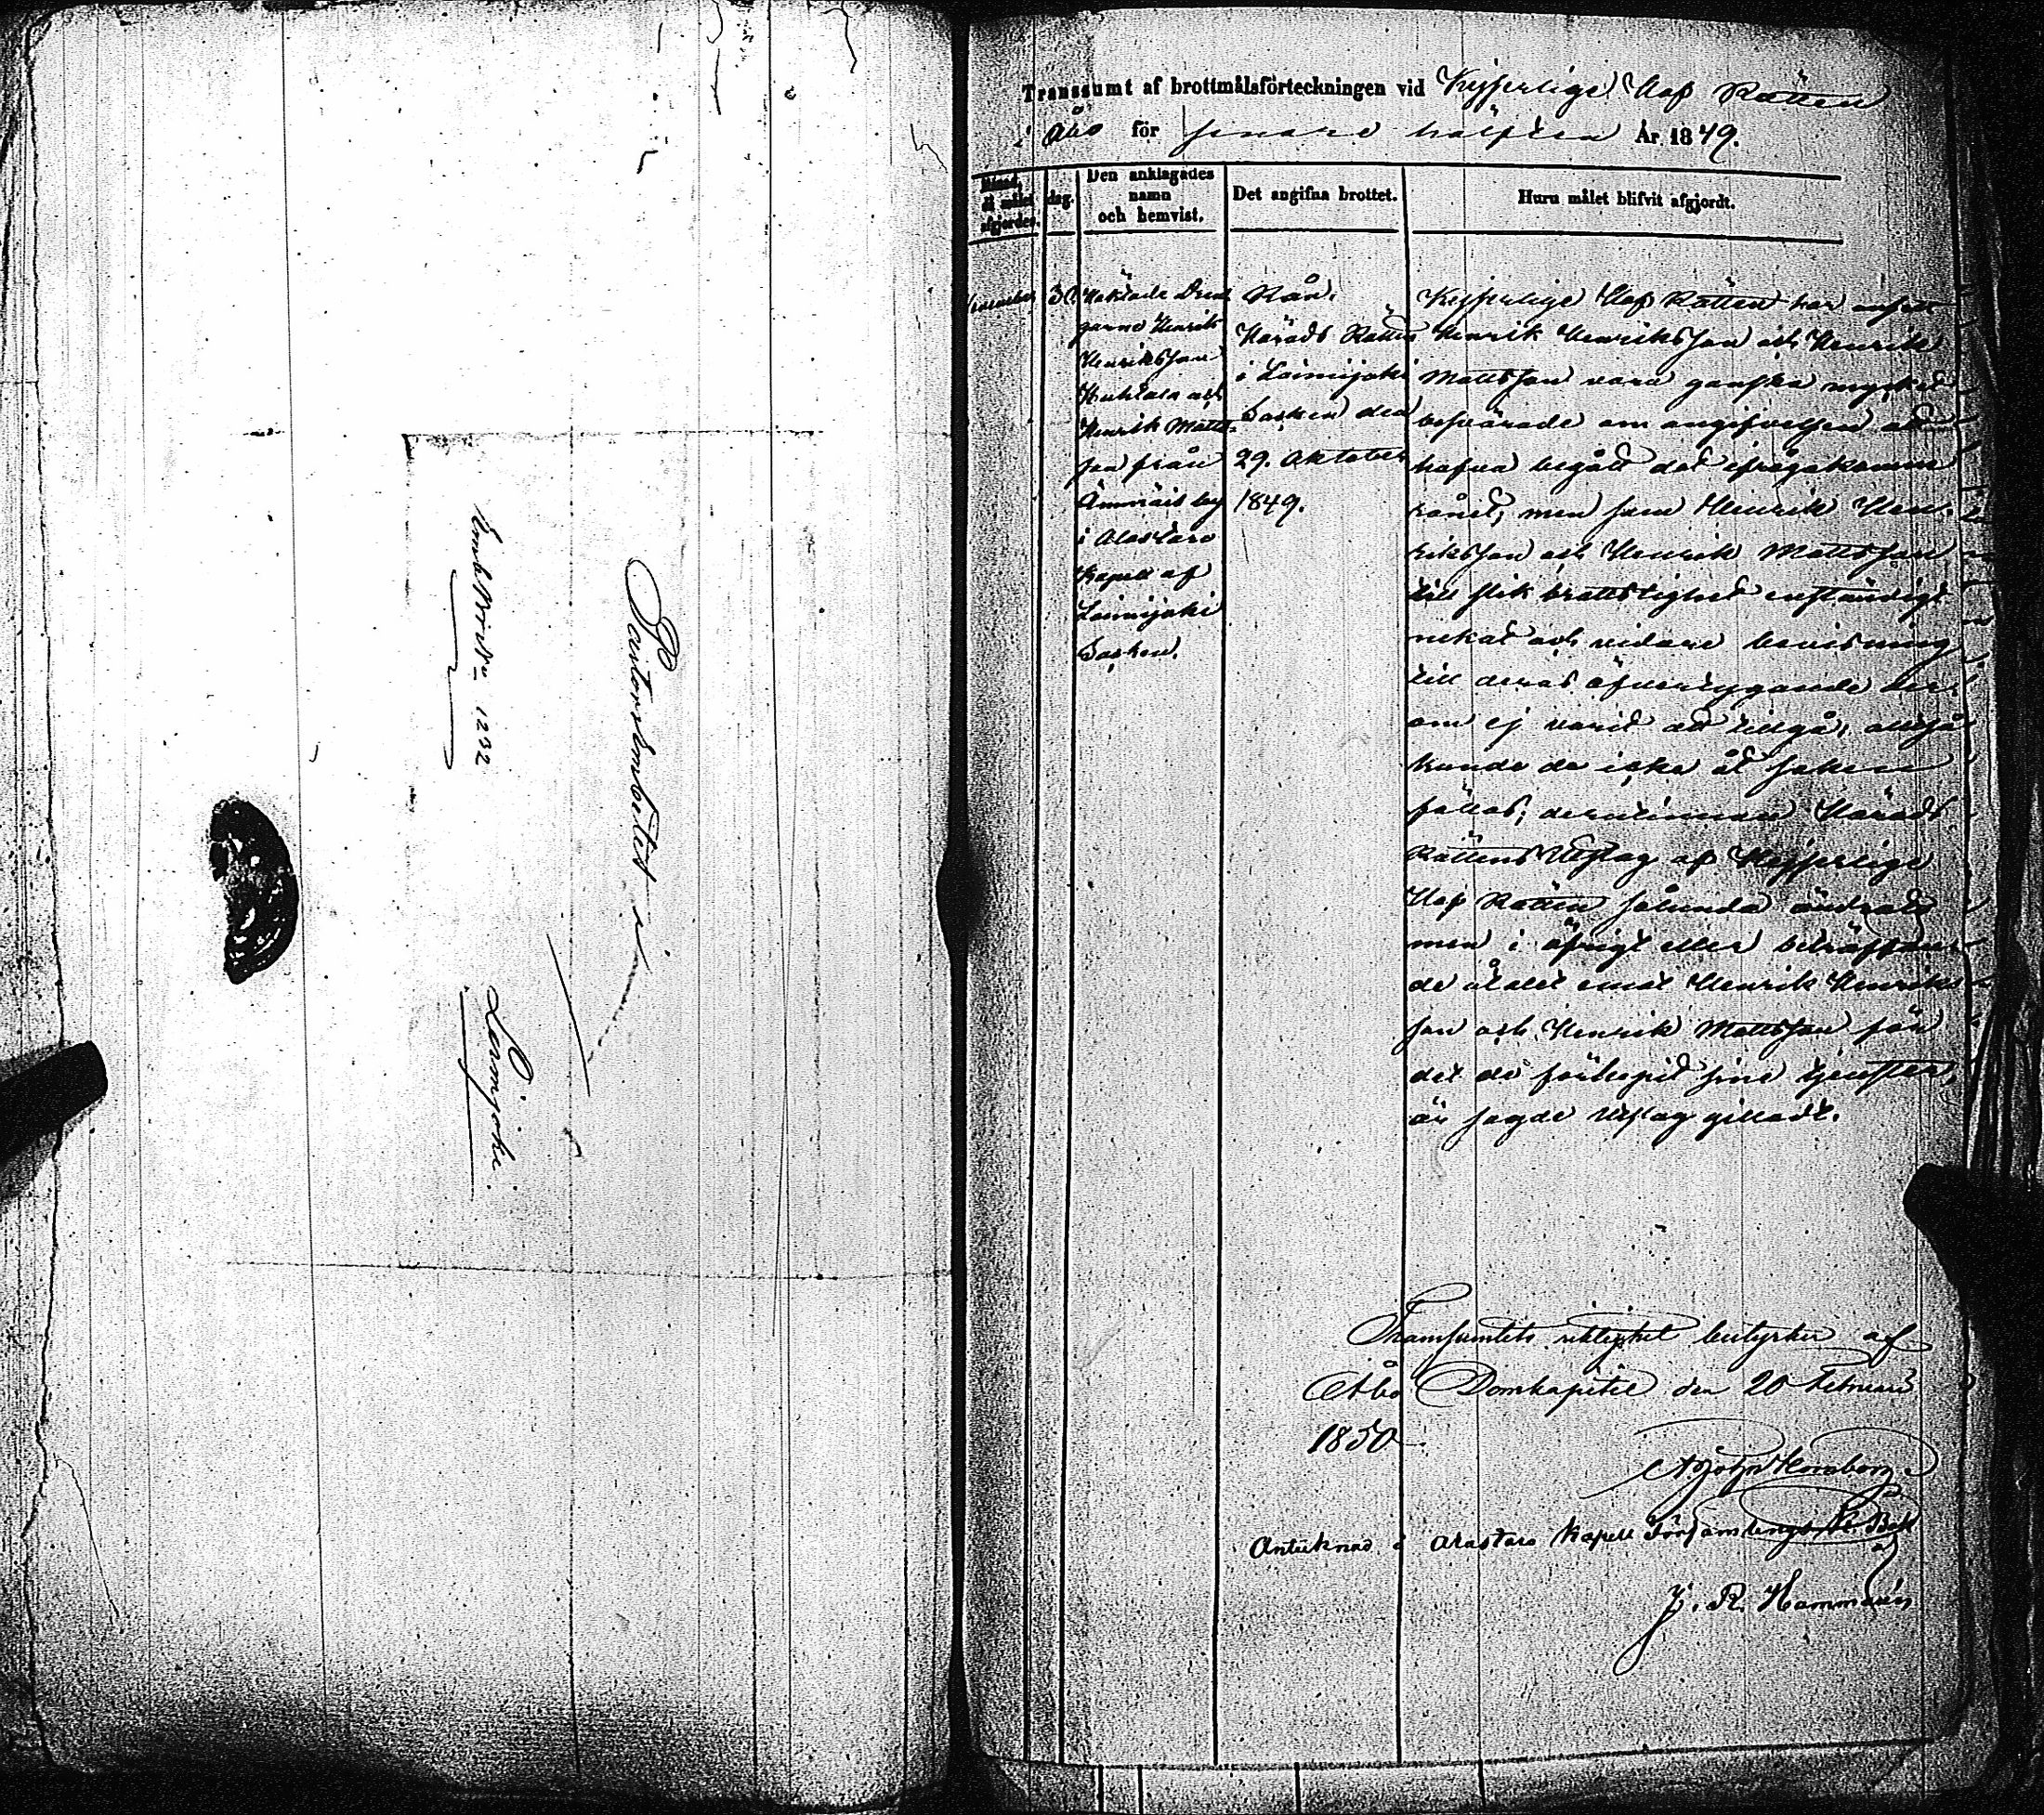 Pastorsembetet i
Loimijoki.
Embetsbref. 1232
Transsumt af brottmålsförteckningen vid Kejserlige Hof Rätten
i Åbo för senare hälften År 1849.
Månad, då målet afgjordes.
dag.
Den anklagades namn och hemvist.
Det angifna brottet.
Huru målet blifvit afgjordt.
November
30.
Häktade Drän-
garne Henrik
Henriksson
Huhtala och
Henrik Matts-
son från
by
i Alastaro
Kapell af
Loimijoki
Socken.
Rån.
Härads Rätten
i Loimijoki
Socken den
29. Oktober
1849.
Kejserlige Hof Rätten har ansett
Henrik Henriksson och Henrik
Mattsson vara ganska mycket
besvärade om angifvelsen att
hafva begått det ifrågakomne
rånet, men som Henrik Hen-
riksson och Henrik Mattsson
till slik brottslighet enständigt
nekat och vidare bevisning
till deras öfvertygande der-
om ej varit att tillgå, alltså
kunde de icke åt saken
fällas; derutinnan Härads
Rättens Utslag af Kejserlige
Hof Rätten sålunda ändrats
men i öfrigt eller beträffan-
de åtalet emot Henrik Henriks-
son och Henrik Mattsson för
det de förlupit sine tjenster,
är sagde Utslag gilladt.
Transumtets riktighet bestyrker af
Åbo Domkapitel den 20 Februari
1850
Antecknad i Alastaro Kapell Församlings K. Bok
af
J. R. Hammarén